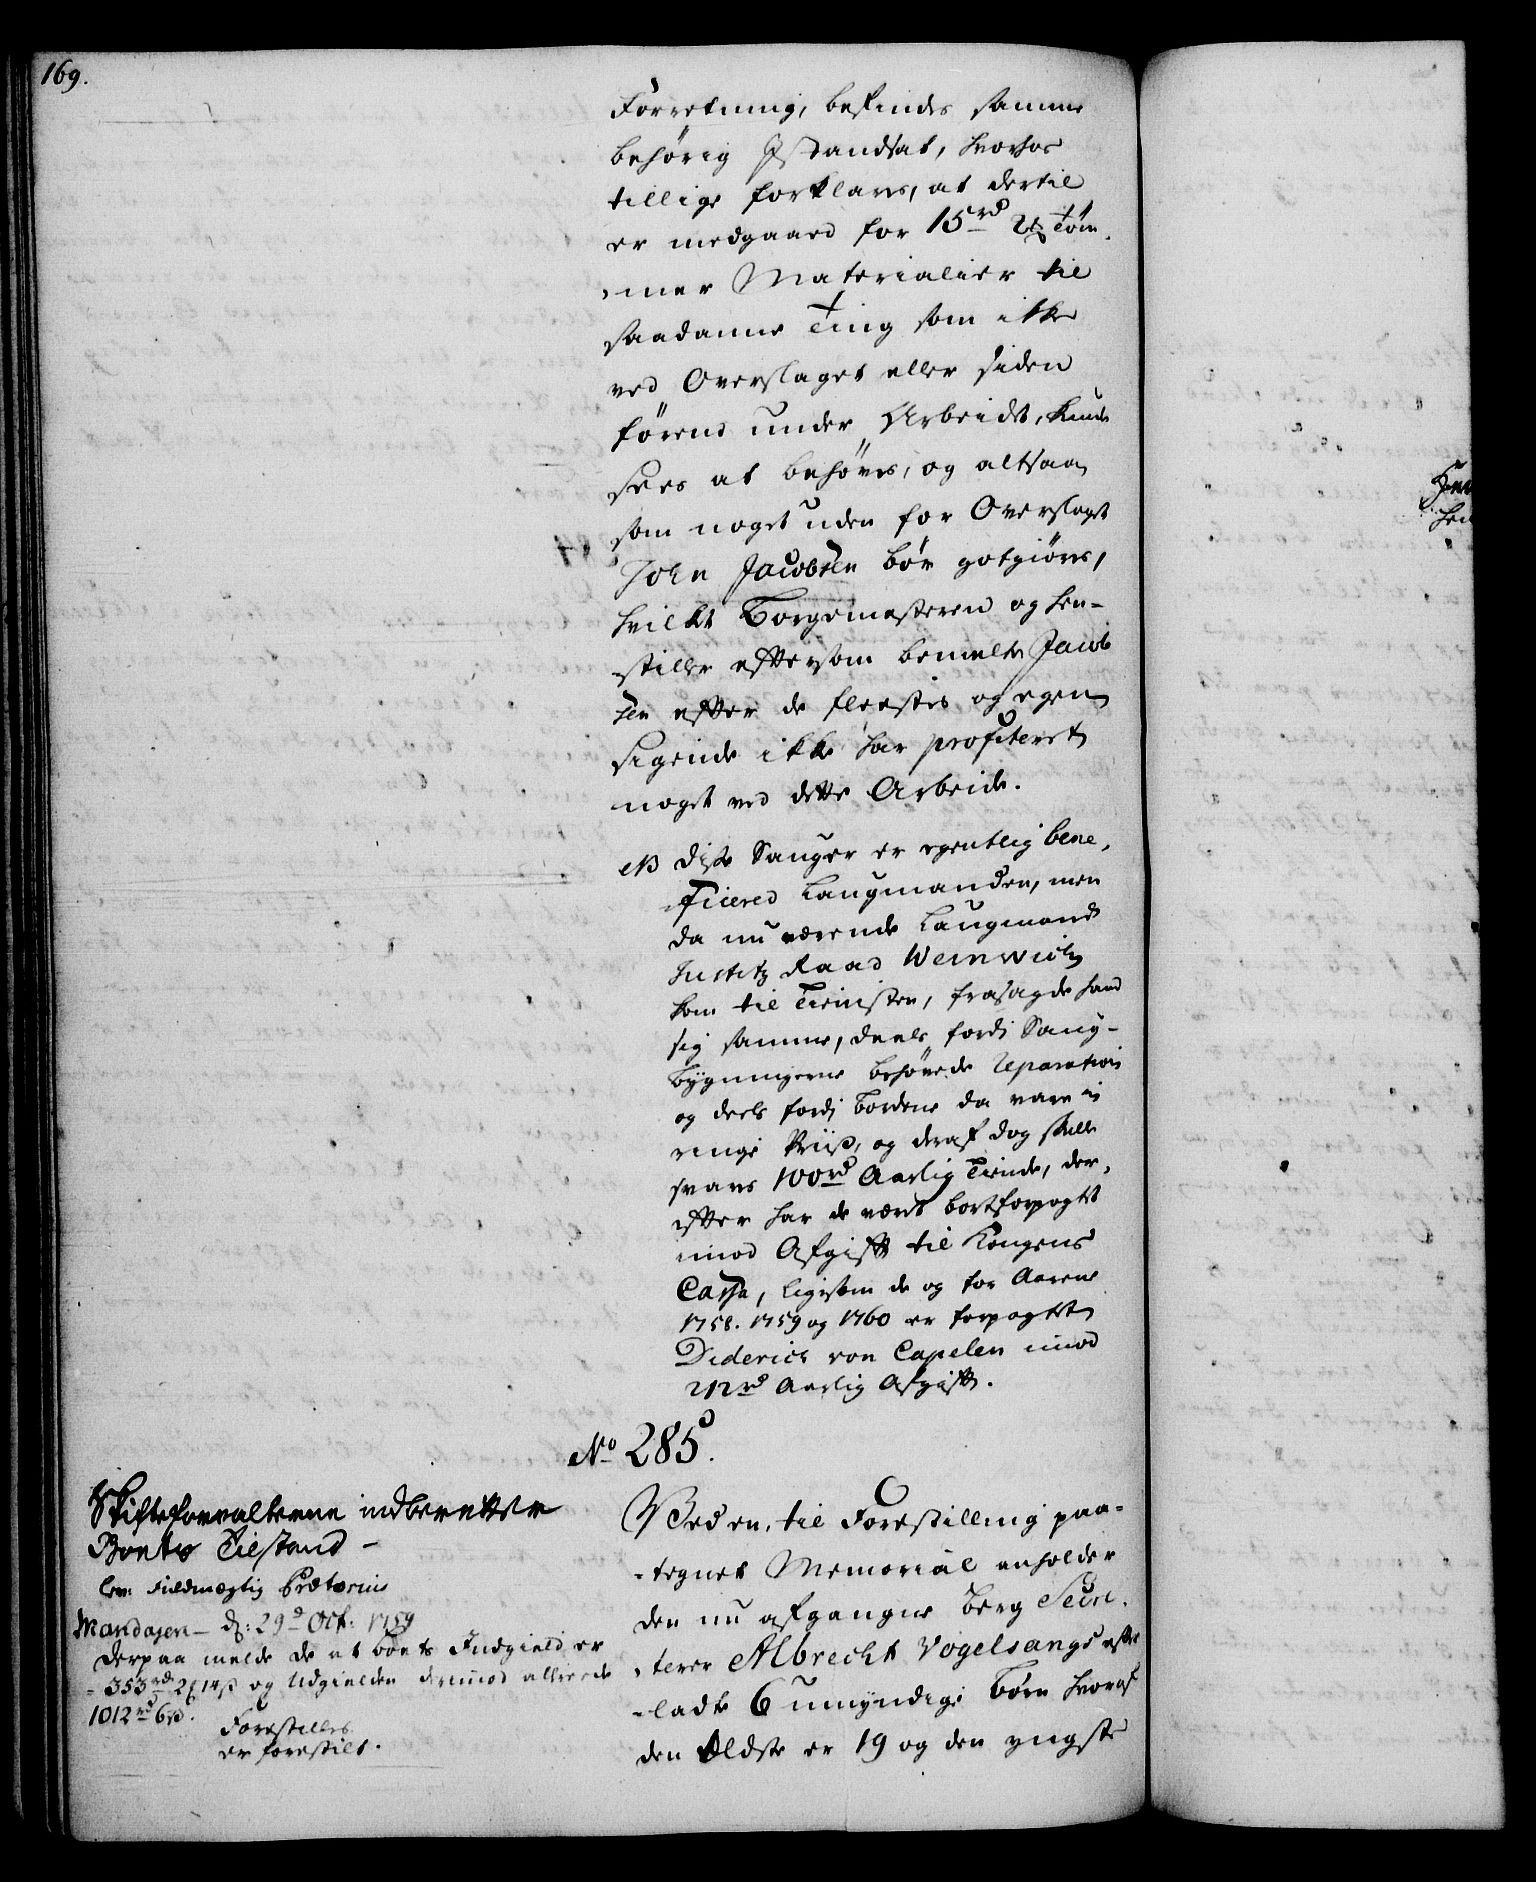 169.
Forretning, befindes samme
behørig Istandsat, hvorhos
tillige forklares, at dertil
er medgaaed for 15rd 2 Tøm-
mer Materialier til
saadanne Ting som ikke
ved Overslaget eller siden
førend under Arbeidet, kunde
sees at behøves, og altsaa
som noget uden for Overslaget
John Jacobsen bør gotgiøres,
hvilket Borgemesteren og hen-
stiller eftersom bemelte Jacob
sen efter de fleestes og egen
sigende ikke har profiteret
noget ved dette Arbeide.
NB disse Sauger er egentlig bene-
ficered Laugmanden, men
da nu værende Laugmand
Justitz Raad Weinwich
kom til Tienisten, frasagde hand
sig samme, deels fordi Saug-
bygningerne behøvede Reparation
og deels fordi Bordene da vare i
ringe Priis, og deraf dog skulle
svares 100rd Aarlig Tiende, der-
efter har de været bortforpagtet
imod Afgift til Kongens
Cassa, ligesom de og for Aarene
1758. 1759 og 1760 er forpagtet
Diderich von Capelen imod
212rd Aarlig Afgift.
No 285.
Skifteforvalterne indberetter
Boets Tilstand -
lev: Fuldmægtig Prætorius
Mandagen d: 29d Oct: 1759
Derpaa melde de at Boets Indgield er
353rd 2 14s og Udgielden derimod allerede
1012rd 6s.
Forestilles
er forestilt.
Ved en, til Forestilling paa-
tegnet Memorial anholder
den nu afgangne Berg
Albrecht Vogelsangs efter
ladte 6 umyndige Børn hvoraf
den Ældste er 19 og den yngste